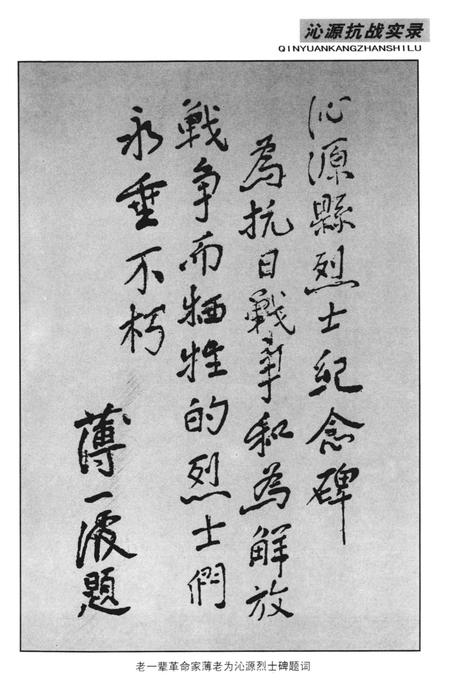 沁源抗战实录
QINYUANKANGZHANSHILU
沁源縣烈士紀念碑
為抗日戰爭和為解放
戰争而牺牲的烈士們
永垂不朽
薄一波題
老一辈革命家薄老为沁源烈士碑题词